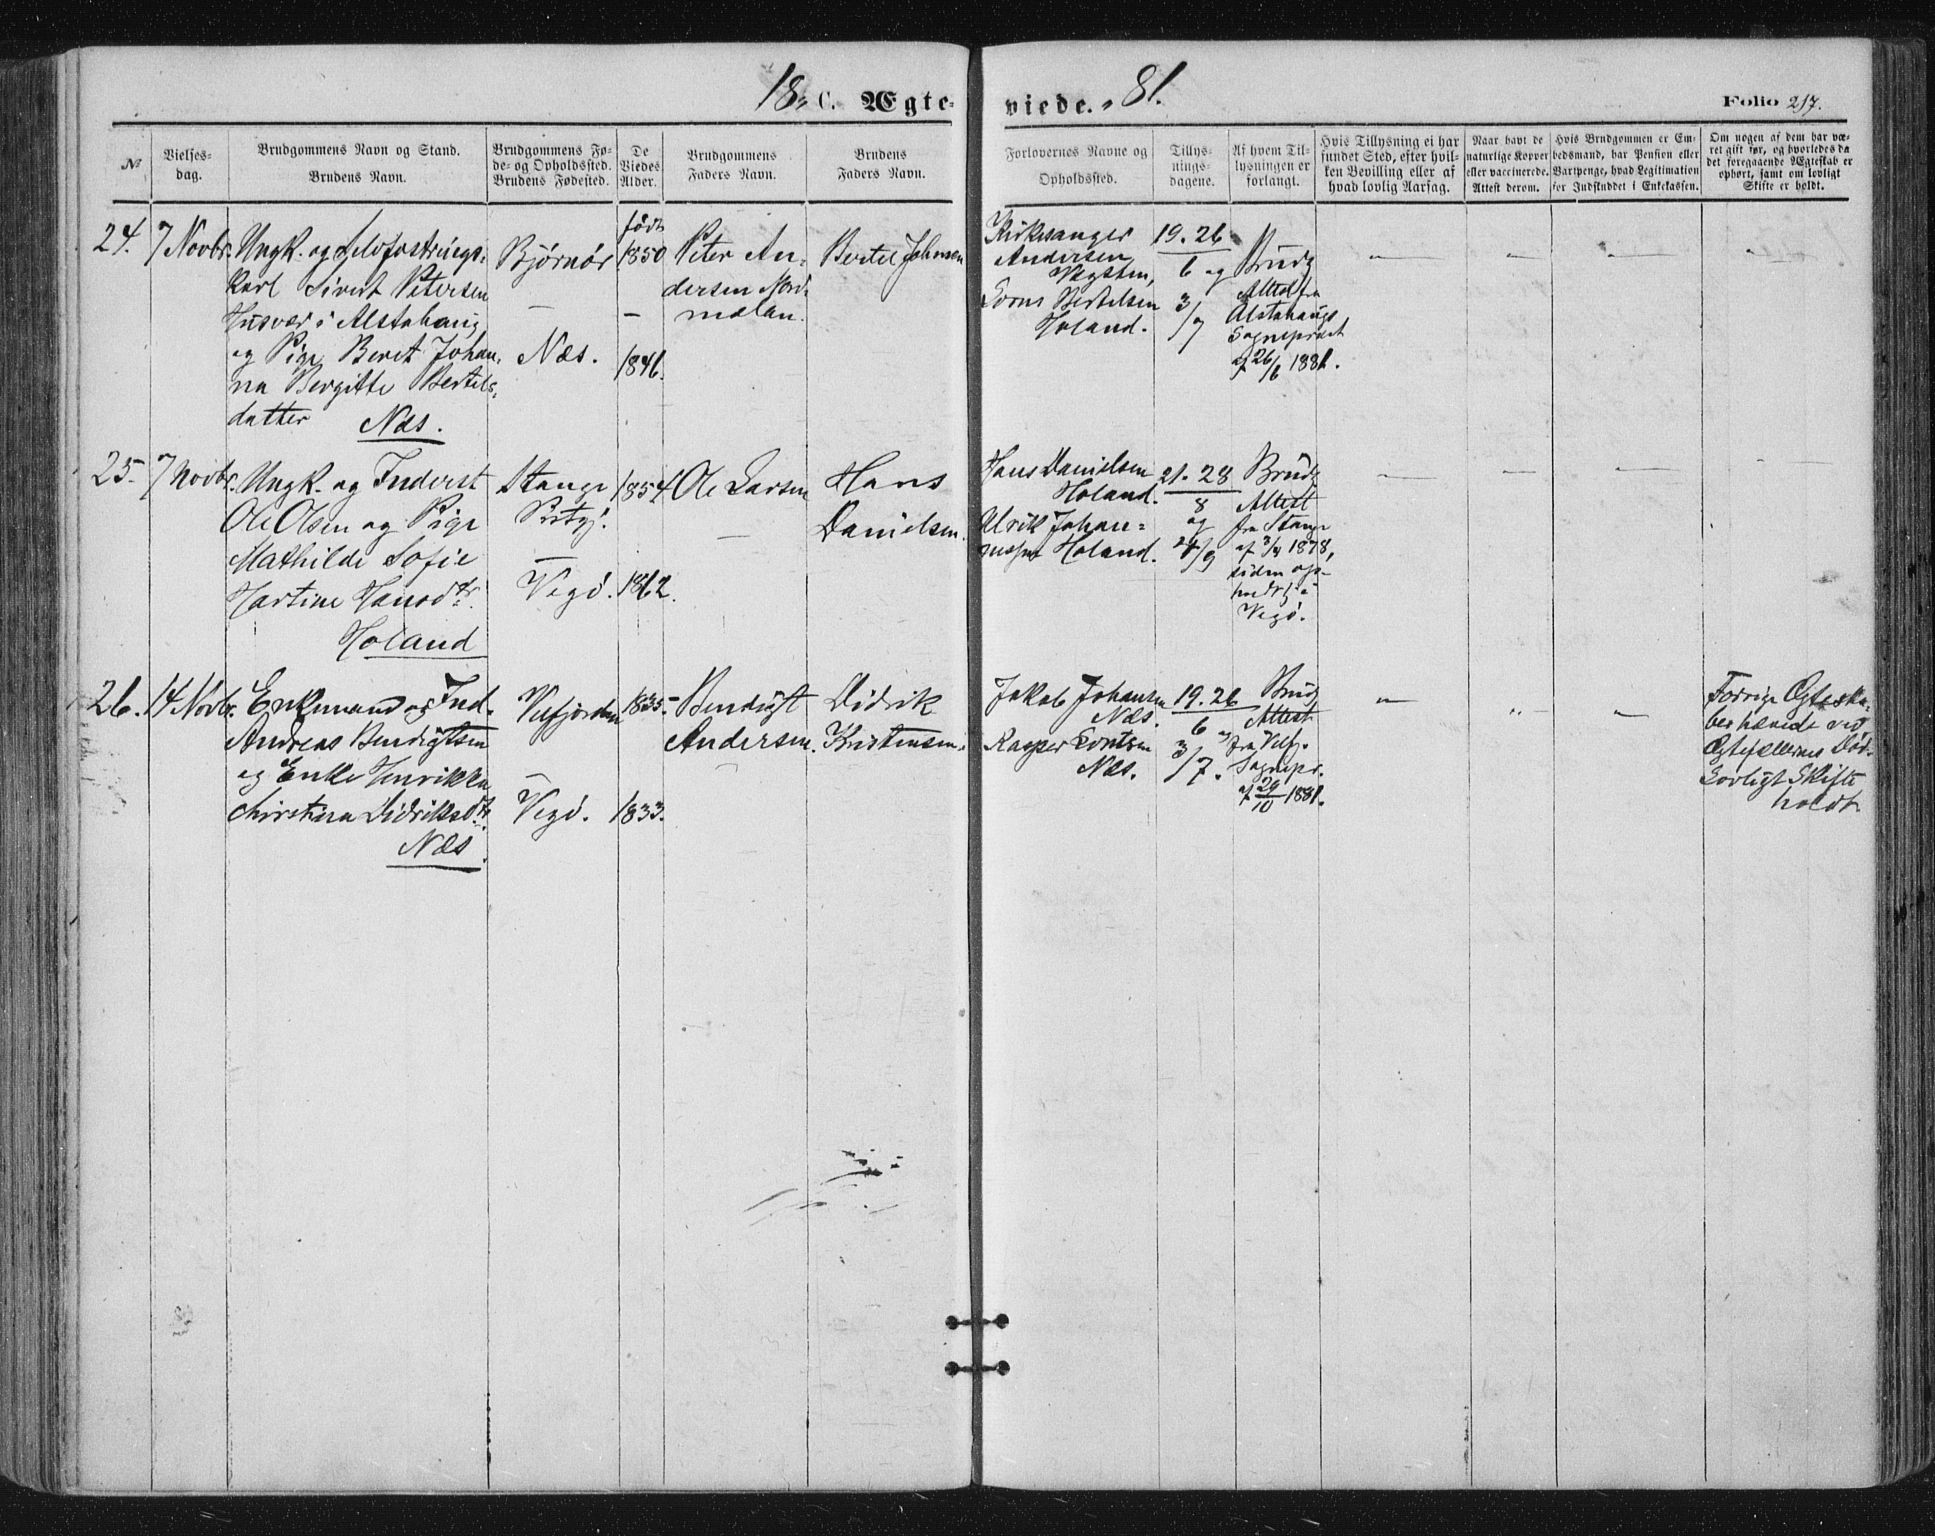 18 C. Ægte-
viede. 81.
Folio 217.
No
Vielses-
dag.
Brudgommens Navn og Stand.
Brudens Navn.
Brudgommens Fø-
de- og Opholdssted.
Brudens Fødested.
De
Viedes
Alder.
Brudgommens
Faders Navn.
Brudens
Faders Navn.
Forlovernes Navne og
Opholdssted.
Tillys-
nings-
dagene.
Af hvem Til-
lysningen er
forlangt.
Hvis Tillysning ei har
fundet Sted, efter hvil-
ken Bevilling eller af
hvad lovlig Aarsag.
Naar havt de
naturlige Kopper
eller vaccinerede.
Attest derom.
Hvis Brudgommen er Em-
bedsmand, har Pension eller
Vartpenge, hvad Legitimation
for Indskuddet i Enkekassen.
Om nogen af dem har væ-
ret gift før, og hvorledes da
det foregaaende Ægteskab er
ophørt, samt om lovligt
Skifte er holdt.
24. 7 Novbr.
Ungk. og Selvfostrings-
karl Sivert Petersen
Husvær i Alstahaug
og Pige Beret Johan-
na Bergitte Bertels-
datter Næs.
Bjørnør
—
Næs.
født
1850
—
1846.
Peter An-
dersen Nord-
mælan.
Bertel Johnsen
Kirkesanger
Andersen
Vegsten,
Evens Bertelsen
Holand.
19. 26
6 og
3/7
Brudg
Attest fra
Alstahaugs
Sognepræst
af 26/6 1881.
25. 7 Novbr.
Ungk. og Inderst
Ole Olsen og Pige
Mathilde Sofie
Hartine Hansdtr.
Holand
Stange
Prstgj.
—
Vegø.
1854
1862.
Ole Larsen
—
Hans
Danielsen.
Hans Danielsen
Holand.
Ulrik Johan-
nessen Holand.
21. 28
8
og
24/9
Brudg
Attest
fra Stange
af 3/4 1878,
siden op-
holdt i
Vegø.
26. 14 Novbr.
Enkemand og Ind.
Andreas Bendigtsen
og Enke Henrikka
Christina Didriksdtr.
Næs.
Velfjorden
—
Vegø.
1835
1833.
Bendigt
Andersen
Didrik
Kristensen.
Jakob Johansen
Næs.
Kasper Evertsen
Næs.
19. 26
6 og
3/7.
Brudg
Attest
fra Velfj.
Sognepr.
af 29/10 1881.
Forrige Ægteska-
ber hævede ved
Ægtefællernes Død.
Lovligt Skifte
holdt